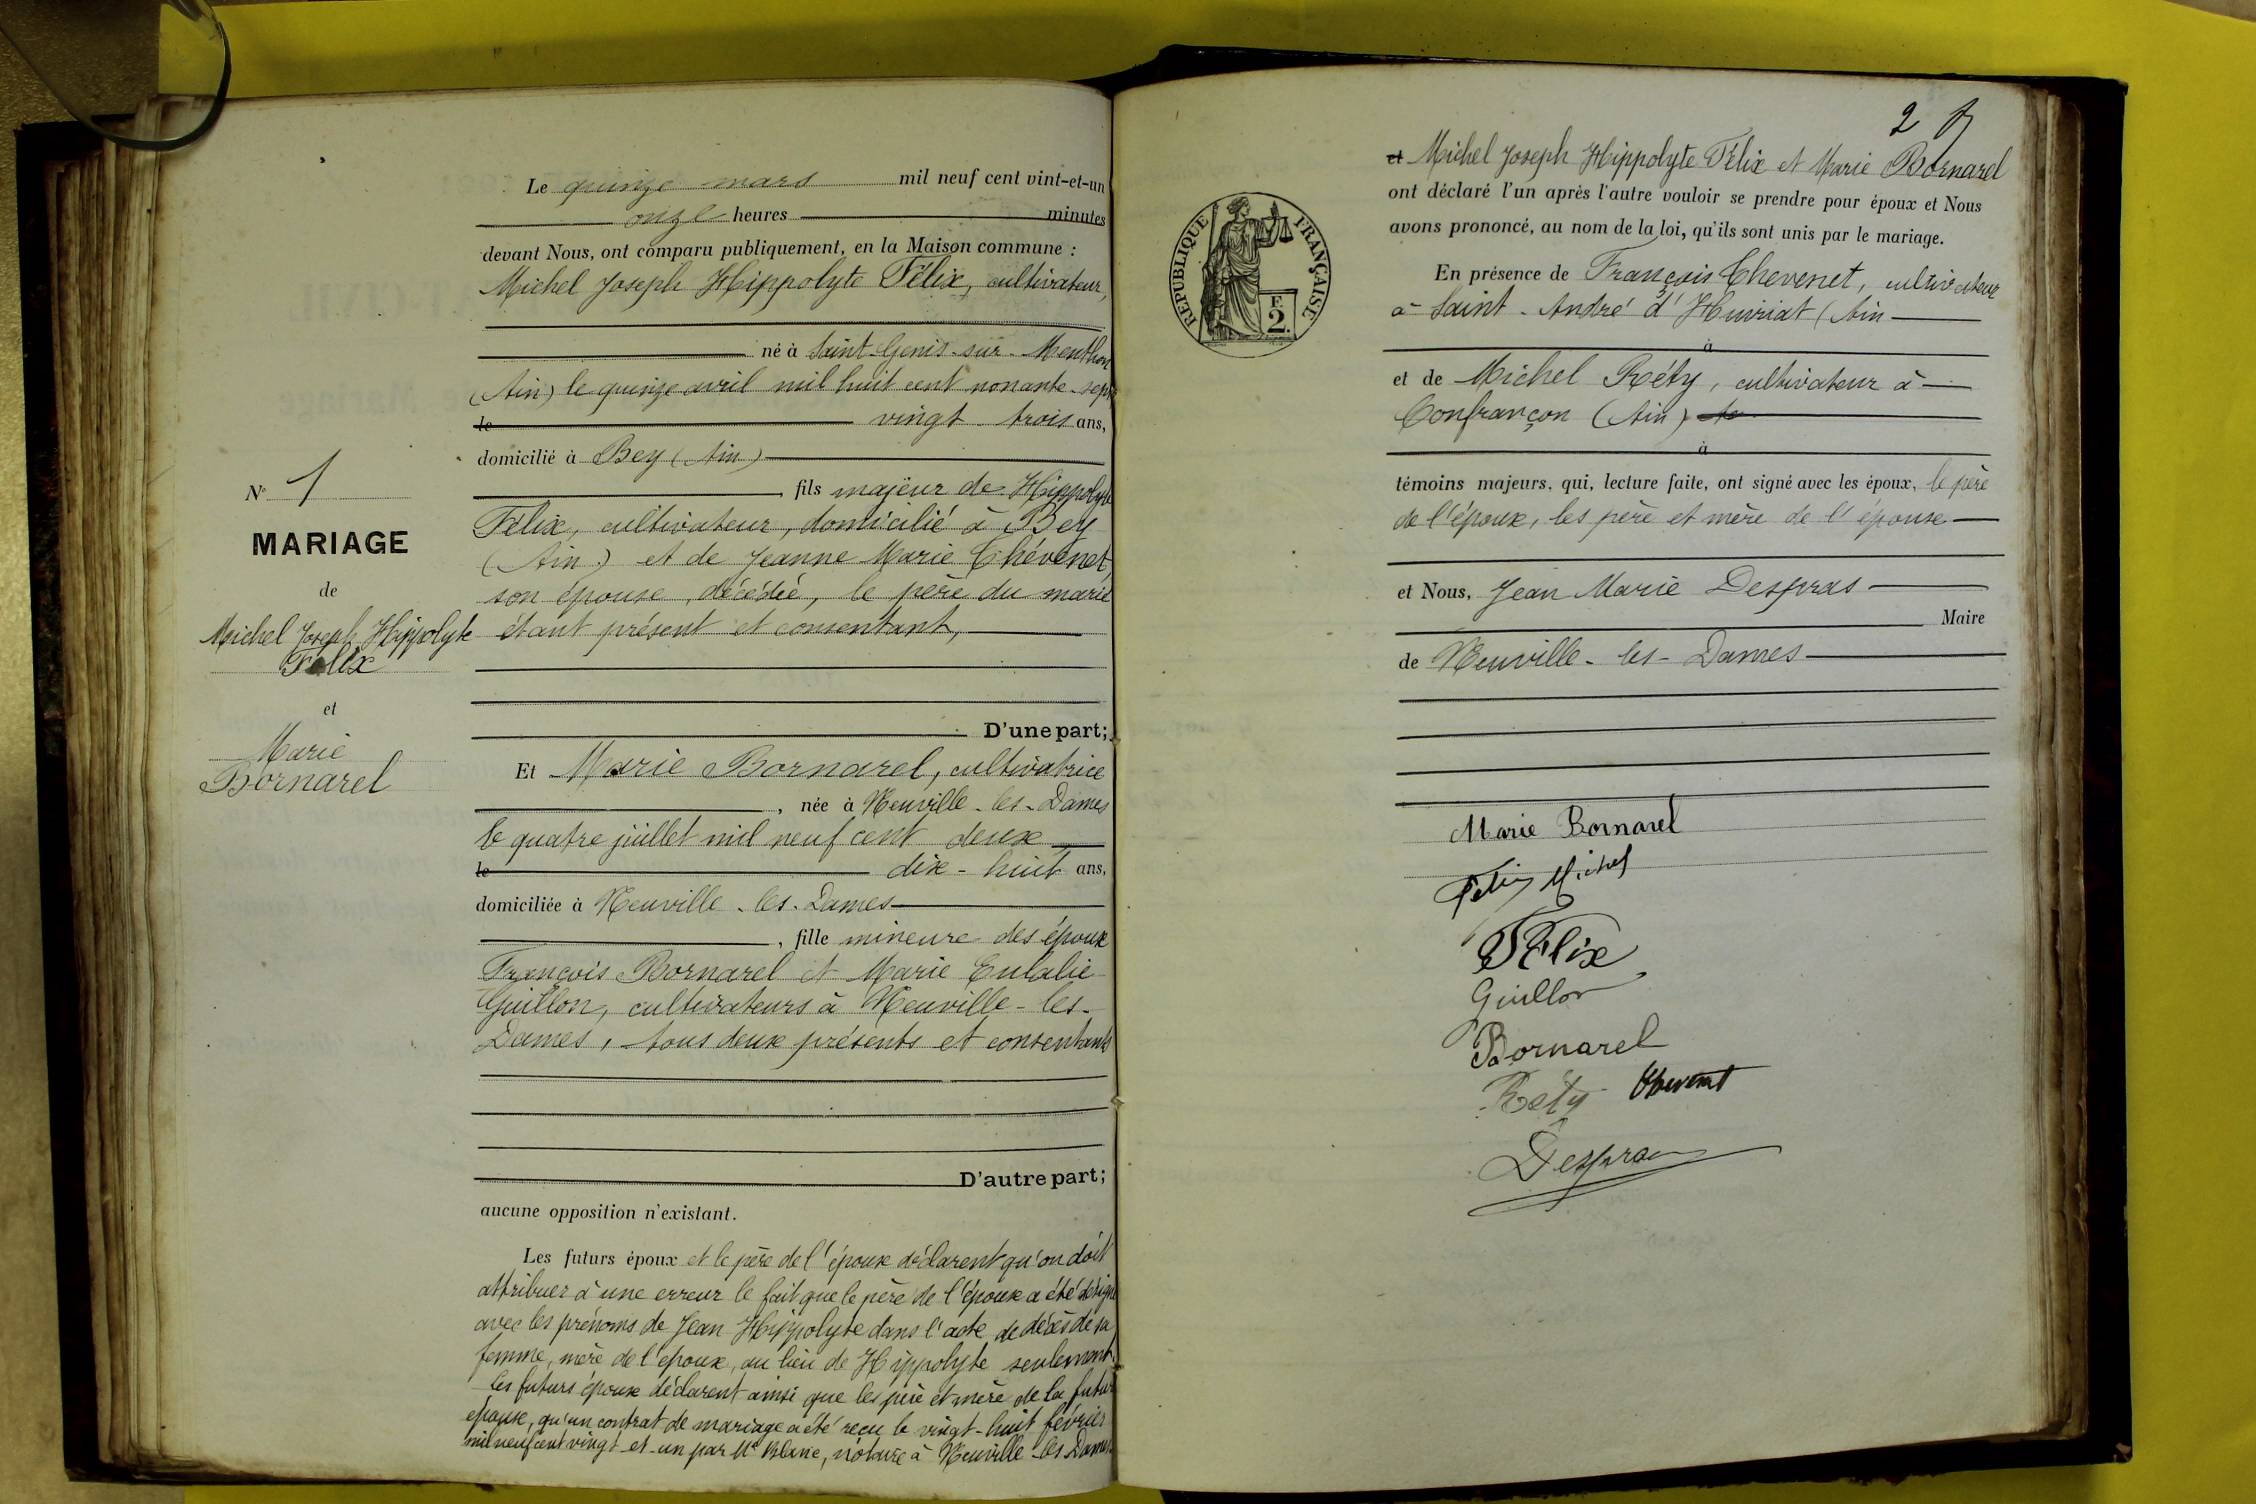 Le quinze mars mil neuf cent vint-et-un
onze heures minutes
devant Nous, ont comparu publiquement, en la Maison commune :
Michel Joseph Hippolyte Félix, cultivateur,
né à Saint-Genis-sur-Menthon
(Ain) le quinze avril mil huit cent nonante-sept
le vingt-trois ans,
domicilié à Bey (Ain)
, fils majeur de Hippolyte
Félix, cultivateur, domicilié à Bey
(Ain) et de Jeanne Marie Chévenet,
son épouse, décédée, le père du marié
étant présent et consentant,
D'une part;
N° 1
MARIAGE
de
Michel Joseph Hippolyte
Félix
et
Marie
Bornarel
Et Marie Bornarel, cultivatrice
, née à Neuville-les-Dames
le quatre juillet mil neuf cent deux
le dix-huit ans,
domiciliée à Neuville-les-Dames
, fille mineure des époux
François Bornarel et Marie Eulalie
Guillon, cultivateurs à Neuville-les-
Dames, tous deux présents et consentants
D'autre part;
aucune opposition n'existant.
Les futurs époux et le père de l'époux déclarent qu'on doit
attribuer à une erreur le fait que le père de l'époux a été désigné
avec les prénoms de Jean Hippolyte dans l'acte de décès de sa
femme, mère de l'époux, au lieu de Hippolyte seulement.
Les futurs époux déclarent ainsi que les père et mère de la future
épouse, qu'un contrat de mariage a été reçu le vingt-huit février
mil neuf cent vingt-et-un par Me Blanc, notaire à Neuville-les-Dames
2
RÉPUBLIQUE FRANÇAISE
F.
2.
et Michel Joseph Hippolyte Félix et Marie Bornarel
ont déclaré l'un après l'autre vouloir se prendre pour époux et Nous
avons prononcé, au nom de la loi, qu'ils sont unis par le mariage.
En présence de François Chevenet, cultivateur
à Saint-André d'Huiriat (Ain
à
et de Michel Réty, cultivateur à
Confrançon (Ain)
à
témoins majeurs, qui, lecture faite, ont signé avec les époux, le père
de l'époux, les père et mère de l'épouse
et Nous, Jean Marie Despras
Maire
de Neuville-les-Dames
Marie Bornarel
Félix Michel
Félix
Guillon
Bornarel
Réty Chevenet
Despras